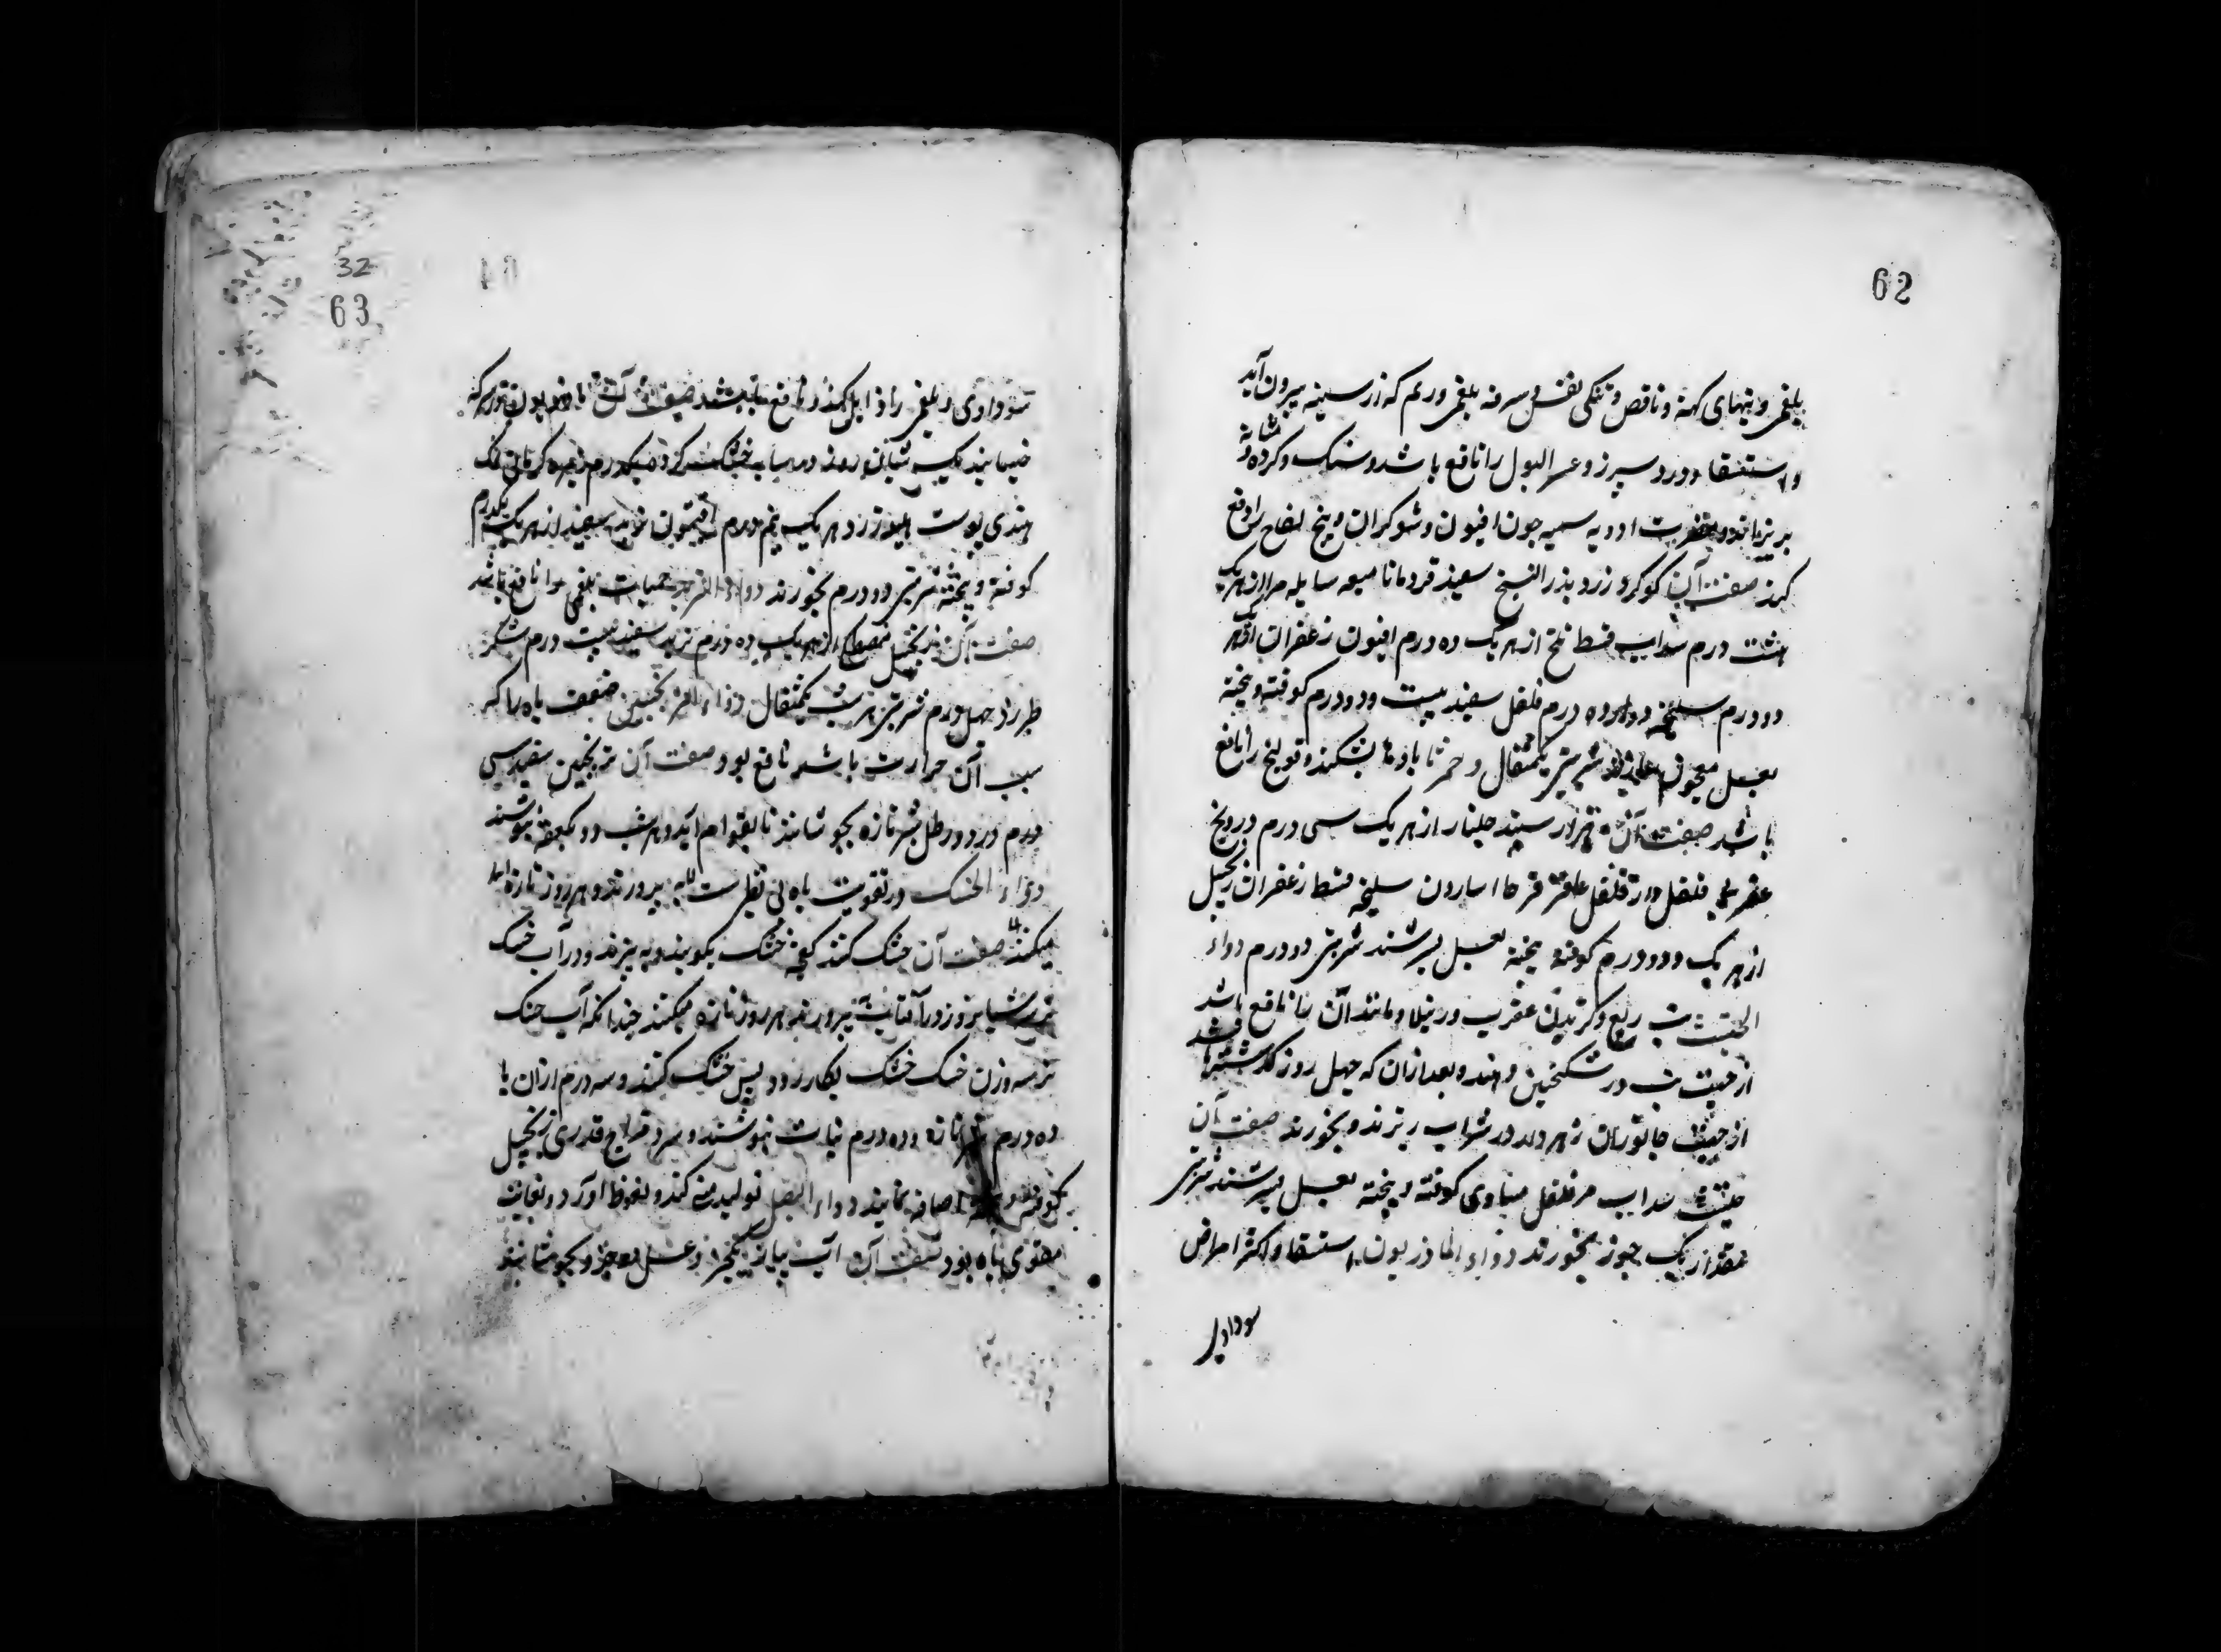 62
بلغمی و تبهای کهنه و ناقص و تنگی نفس و سرفه بلغمی و ریم که از سینه بیرون آید
و استسقا و درد سپرز و عسر البول را نافع باشد و سنک و کرده و مثانه
بریزاند و مضرت ادویه سمیه چون افیون و شوکران و بیخ لفاح را دفع
کند صفت آن کوکرد زرد بذر البنج سفید قردمانا میعه سایله مر از هر یک
هشت درم سداب قسط تلخ از هر یک ده درم افیون زعفران از هر یک
دو درم سلیخه دوازده درم فلفل سفید بیست و دو درم کوفته و بیخته
بعسل معجون سازند شربتی یکمثقال و خمر تا بادها بشکند و قولنج را نافع
باشد صفت آن سپید جلنار از هر یک سی درم درونج
عقربی فلفل دارفلفل عاقر قرحا اسارون سلیخه قسط زعفران زنجبیل
از هر یک دو درم کوفته بیخته بعسل بسرشند شربتی دو درم دواء
الحلتیت تب ربع و کزیدن عقرب و رتیلا و مانند آن را نافع باشد
از جهت تب در سکنجبین دهند و بعد از آن که چهل روز گذشته باشد
از جهت جانوران زهردار در شراب ریزند و بخورند صفت آن
حلتیت سداب مر فلفل مساوی کوفته و بیخته بعسل بسرشند شربتی
مقدار یک جوز بخورند دواء الماذریون استسقا و اکثر امراض
سوداوی
32
63
سوداوی و بلغمی را زایل کند و نافع باشد صفت آن ماذریون در سرکه
خیسانیده یک شبانروز در سایه خشک کرده یکدرم زیره کرمانی نمک
هندی پوست هلیله زرد هر یک نیم درم افتیمون تربد سفید از هر یک یکدرم
کوفته و بیخته شربتی دو درم بخورند دواء التربد حمیات بلغمی را نافع باشد
صفت آن زنجبیل مصطکی از هر یک ده درم تربد سفید بیست درم شکر
طبرزد چهل درم شربتی هر شب یکمثقال دواء الترنجبین ضعف باه را که
سبب آن حرارت باشد نافع بود صفت آن ترنجبین سفید سی
درم در دو رطل شیر تازه بجوشانند تا بقوام آید و هر شب دو کفچه بنوشند
دواء الخسک در تقویت باه بی نظیرست بپرورند و هر روز تازه
میکنند صفت آن خسک خشک بکوبند و بپزند و در آب خسک
تر سه شبانروز در آفتاب بپرورند هر روز تازه میکنند چندانکه آب خسک
تر سه وزن خسک خشک بکار رود پس خشک کنند و سه درم از آن با
ده درم شیر تازه و ده درم نبات بنوشند و سرد مزاج قدری زنجبیل
کوفته اضافه نمایند دواء البصل تولید منی کند و نعوظ آورد و بغایت
مقوی باه بود صفت آن آب پیاز یکجزو عسل دو جزو بجوشانند